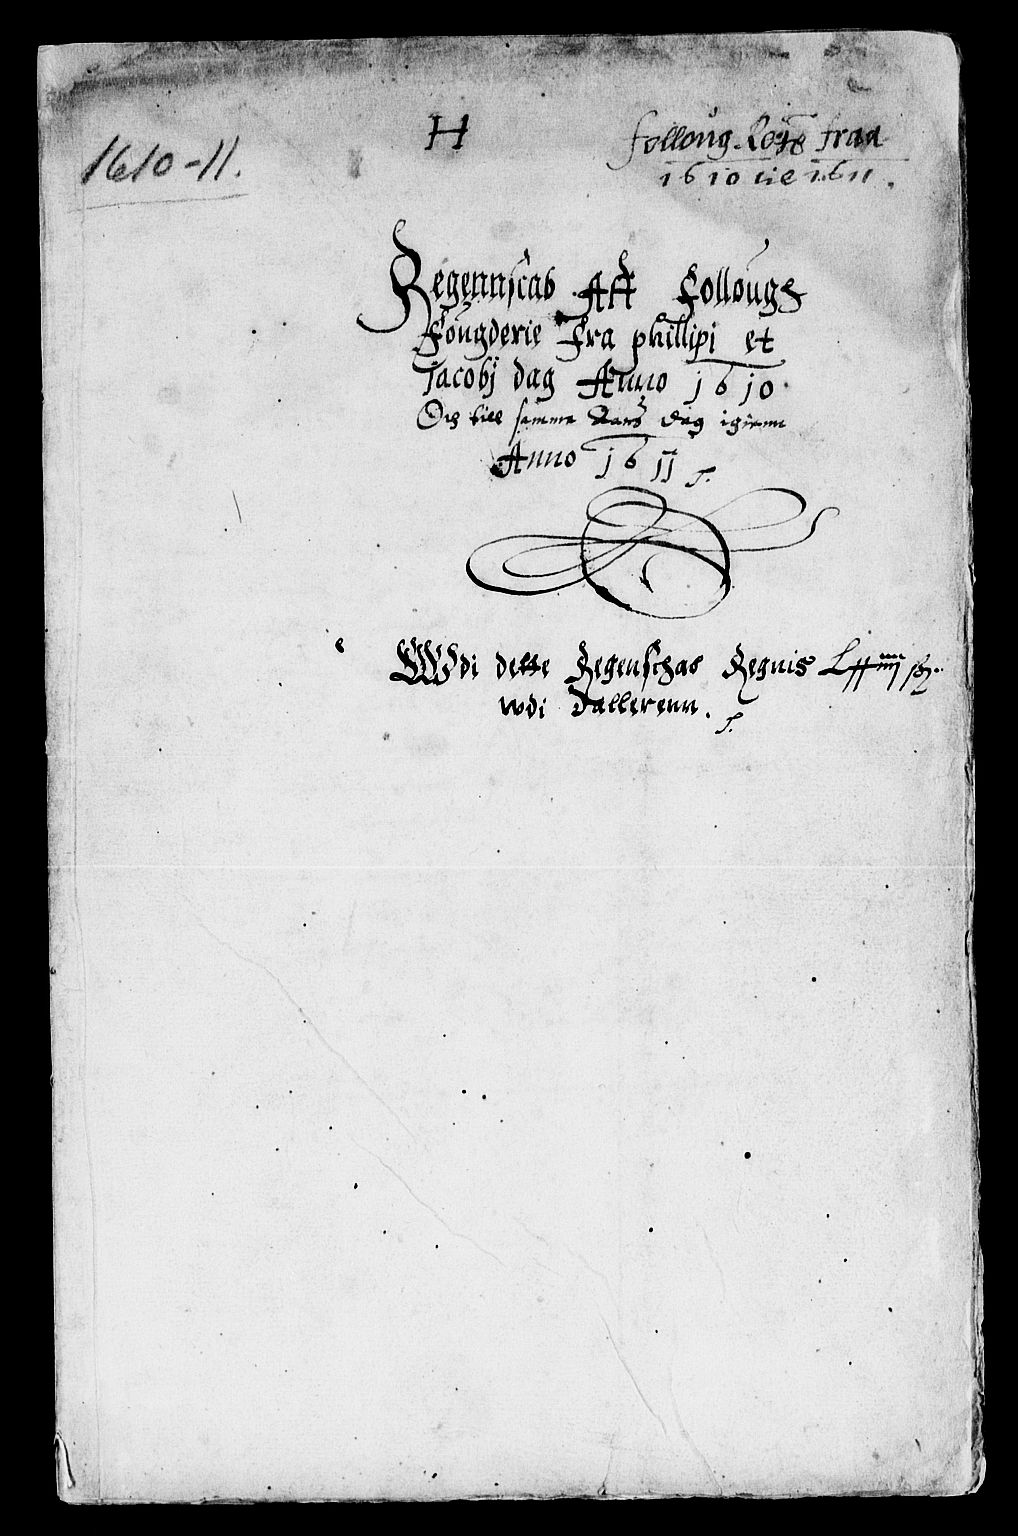 H
1610-11.
folloug. Regs fraa
1610 till 1611.
Regennscab Aff Follougs
Fougderie Fra phillipi et
Jacobj dag Anno 1610.
Och till samme Aars dag igienn
Anno 1611
Wdi dette Regenschab Regnis
wdi Dallerenn.